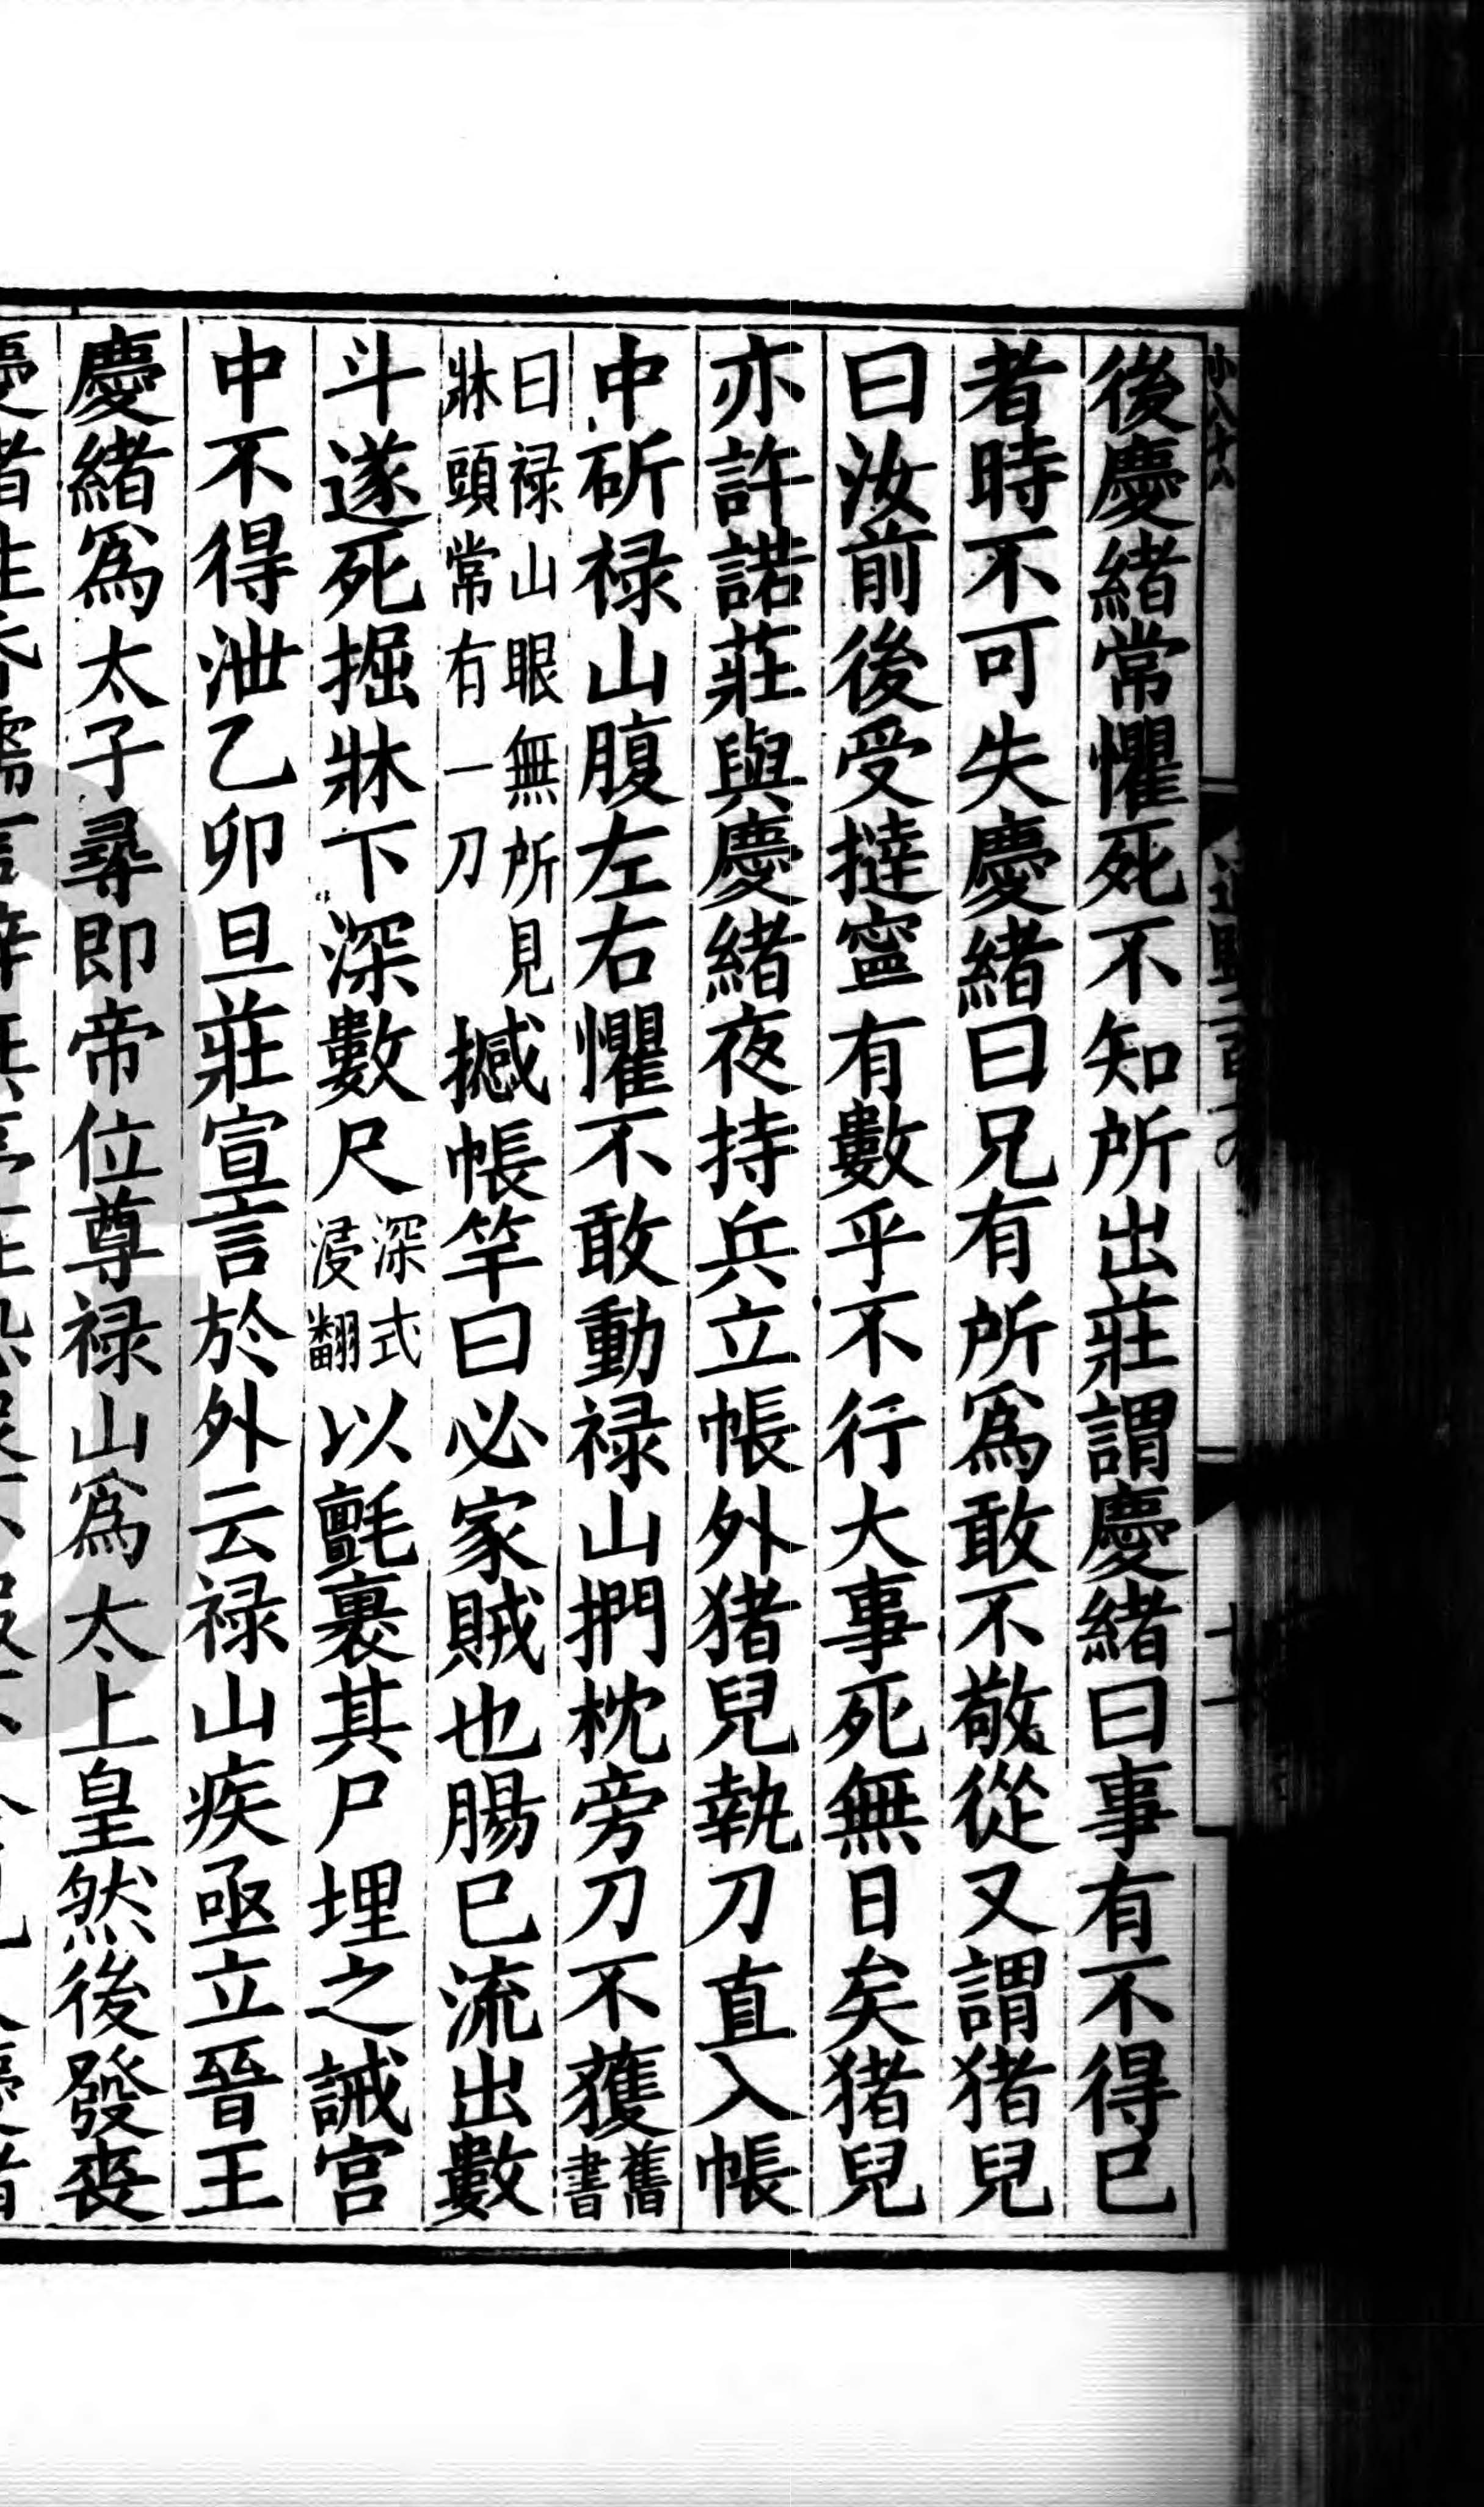 小八十八
後慶緒常懼死不知所出莊謂慶緒曰事有不得已
者時不可失慶緒曰兄有所爲敢不敬從又謂猪兒
曰汝前後受撻寧有數乎不行大事死無日矣猪兒
亦許諾莊與慶緒夜持兵立帳外猪兒執刀直入帳
中斫禄山腹左右懼不敢動禄山捫枕旁刀不獲舊書
曰禄山眼無所見牀頭常有一刀撼帳竿曰必家賊也腸已流出數
斗遂死掘牀下深數尺深式浸翻以氈裹其尸埋之誡宫
中不得泄乙卯旦莊宣言於外云禄山疾亟立晉王
慶緒爲太子尋即帝位尊禄山爲太上皇然後發喪